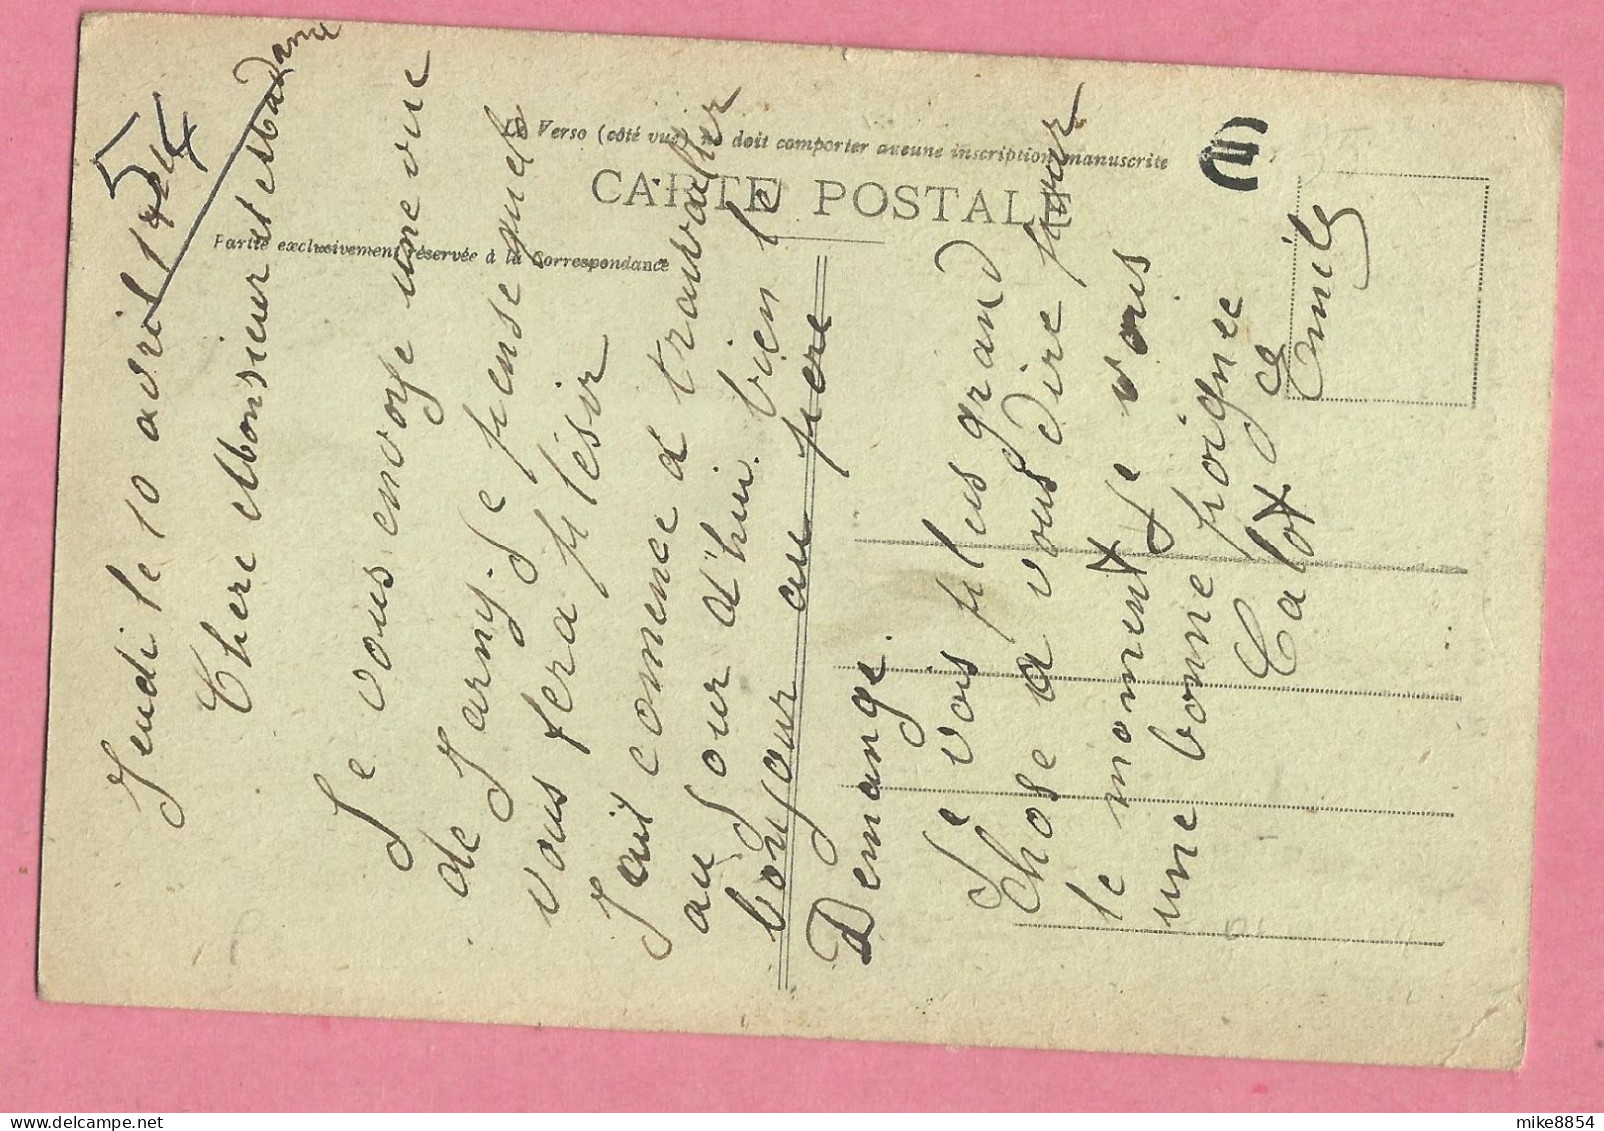 Le Verso (côté vue) ne doit comporter aucune inscription manuscrite
CARTE POSTALE
Partie exclusivement réservée à la Correspondance
Jeudi le 10 avril 1924
Chere Monsieur et Madame
Je vous envoye une vue
de Jarny. Je pense quel
vous fera plésir
Jait comence a travaller
au Jour d'hui. bien le
bonjour au pere
Demange.
Je vois plus grand
Chose a vous dire pour
le moment Je vous
une bonne poignee
Calot Emile
mike8854